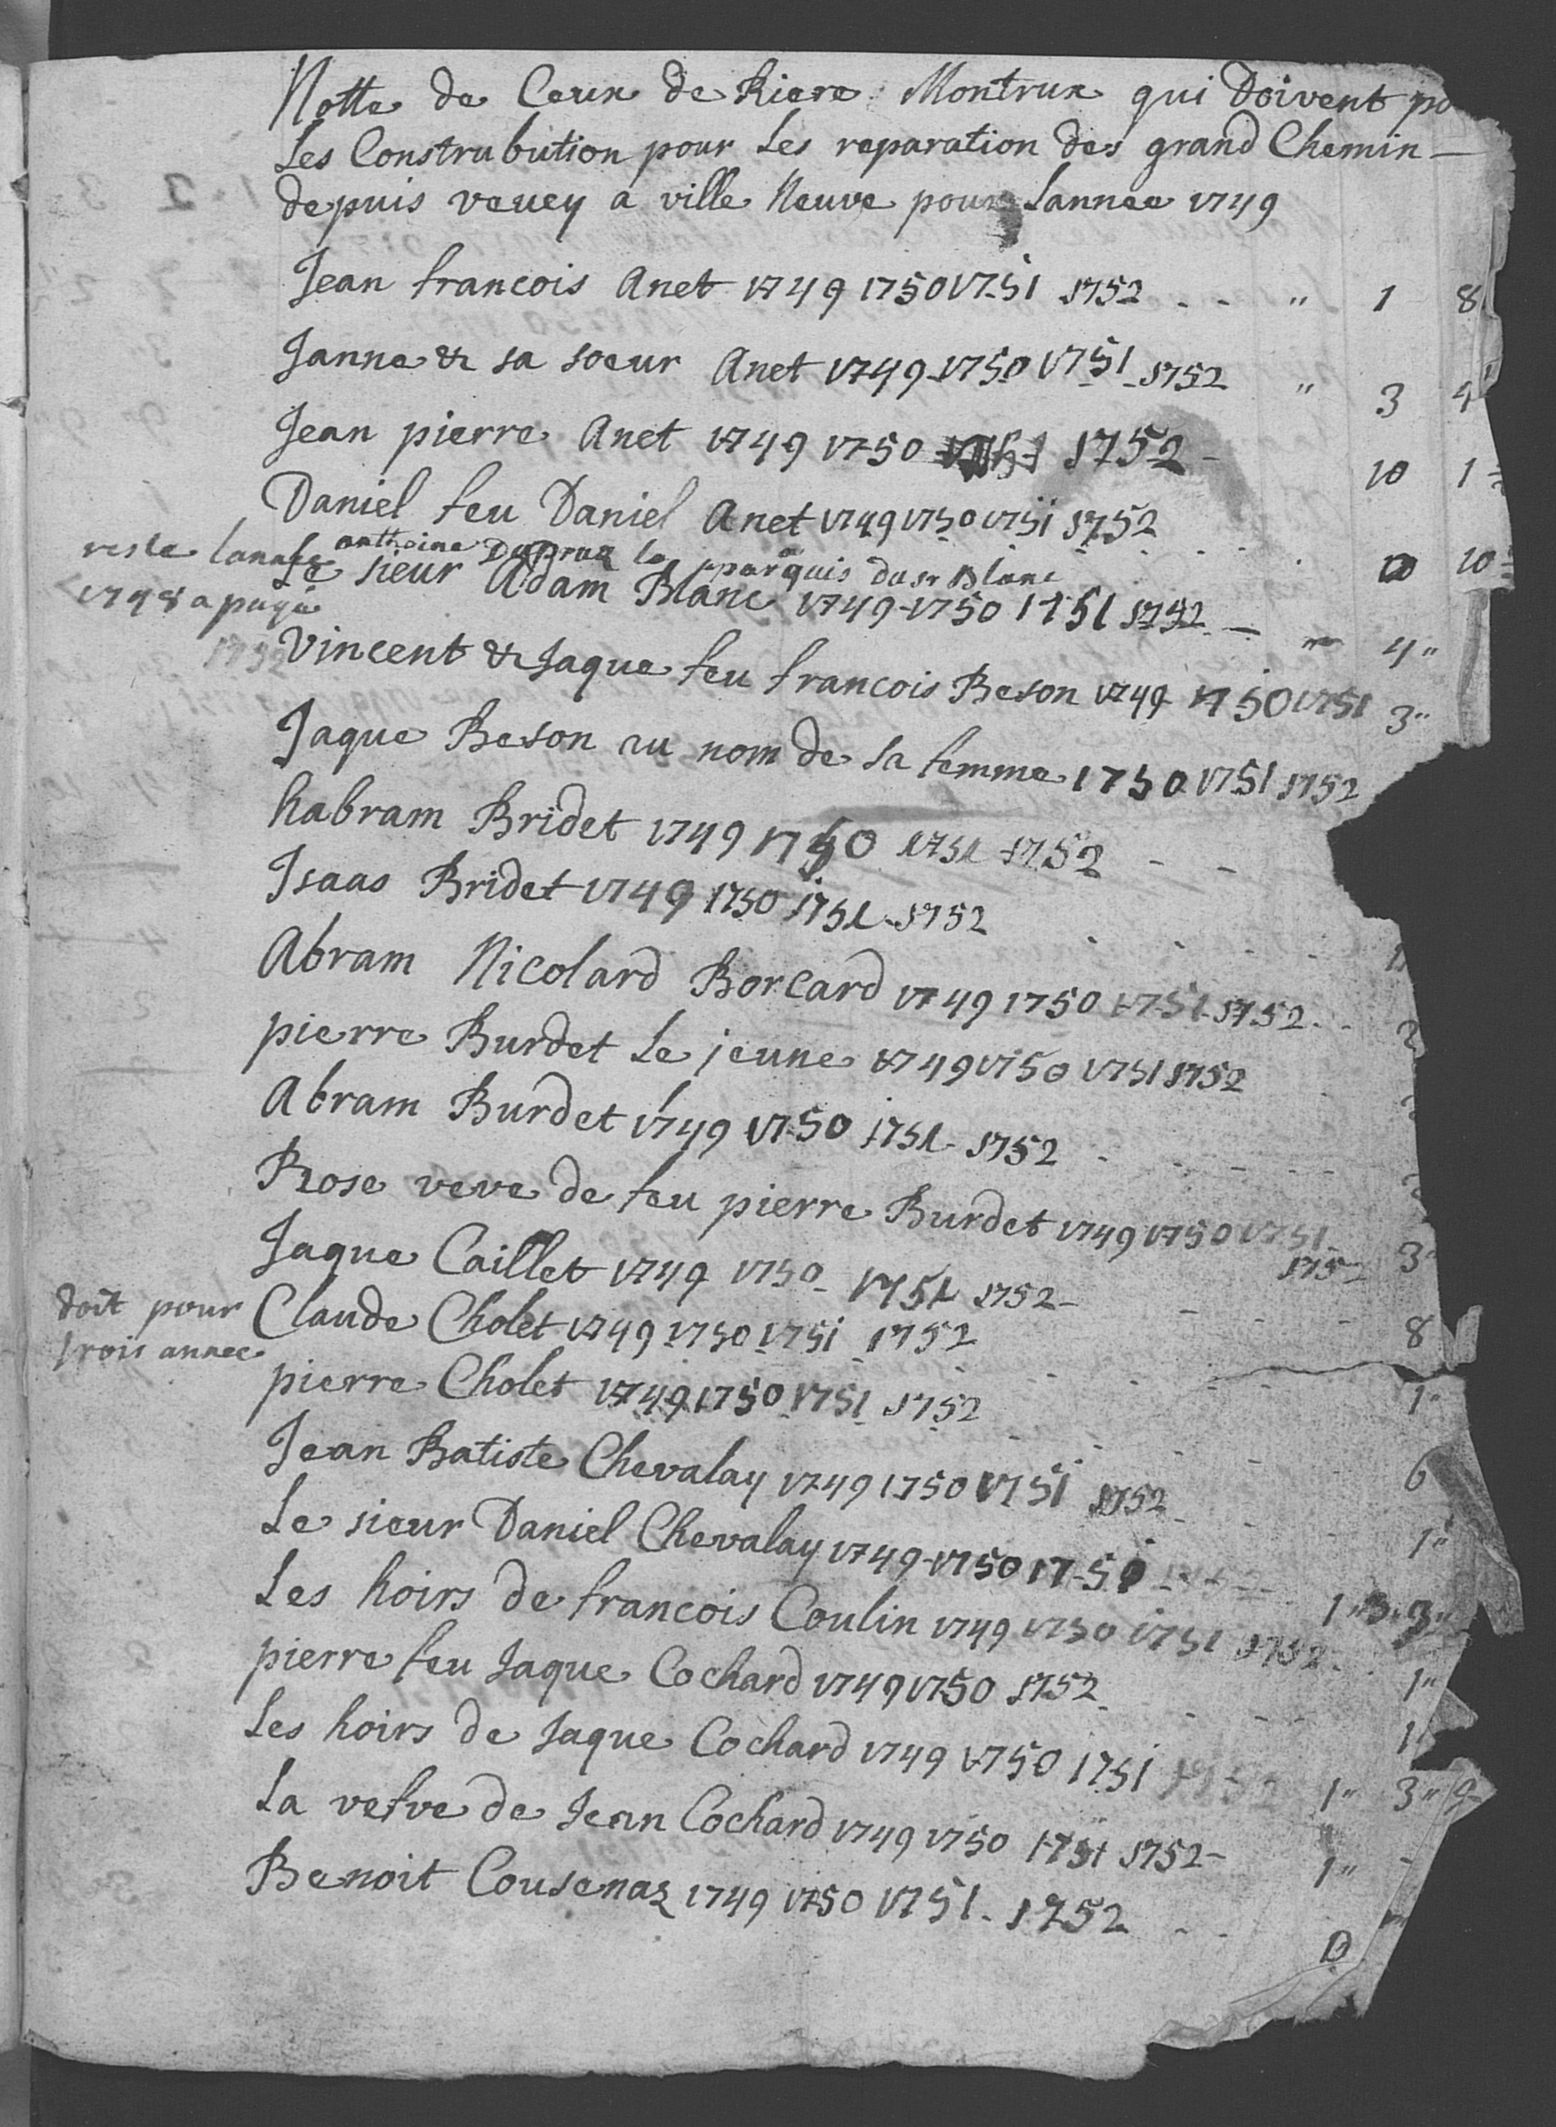 Notte de Ceux de Riere Montrux qui Doivent po
Les Construbution pour Les reparation des grand Chemin
depuis vevey a ville Neuve pour Lannee 1749
Jean francois Anet 1749 1750 1751 1752 - - " 1 8
Janne & sa soeur Anet 1749 1750 1751 1752 " 3 4
Jean pierre Anet 1749 1750 1752 - 10 1
Daniel feu Daniel Anet 1749 1750 1751 1752 10 10
reste lannee anthoine Dupraz par quis du sr Blanc
1748 a payé Le sieur Adam Blanc 1749 1750 1751 1752 - " 4 "
Vincent & Jaque feu francois Beson 1749 1750 1751 3 "
Jaque Beson au nom de sa femme 1750 1751 1752
habram Bridet 1749 1750 1751 1752 - -
Isaas Bridet 1749 1750 1751 1752
Abram Nicolard Borcard 1749 1750 1751 1752
pierre Burdet Le jeune 1749 1750 1751 1752
Abram Burdet 1749 1750 1751 1752
Rose veve de feu pierre Burdet 1749 1750 1751
1752 3
Jaque Caillet 1749 1750 1751 1752 - 8
doit pour Claude Cholet 1749 1750 1751 1752 1 "
trois annee
pierre Cholet 1749 1750 1751 1752 6
Jean Batiste Chevalay 1749 1750 1751 1752 1 "
Le sieur Daniel Chevalay 1749 1750 1751 1 " 3 " 3 "
Les hoirs de francois Coulin 1749 1750 1751 1752 1 "
pierre feu Jaque Cochard 1749 1750 1752 1
Les hoirs de Jaque Cochard 1749 1750 1751 1752 1 " 3 " 9
La vefve de Jean Cochard 1749 1750 1751 1752 - 1 " -
Benoit Cousenaz 1749 1750 1751 1752